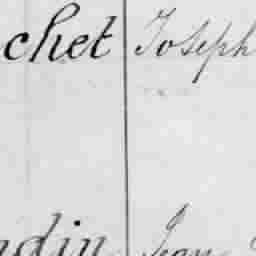 chet Joseph
ndin Jean